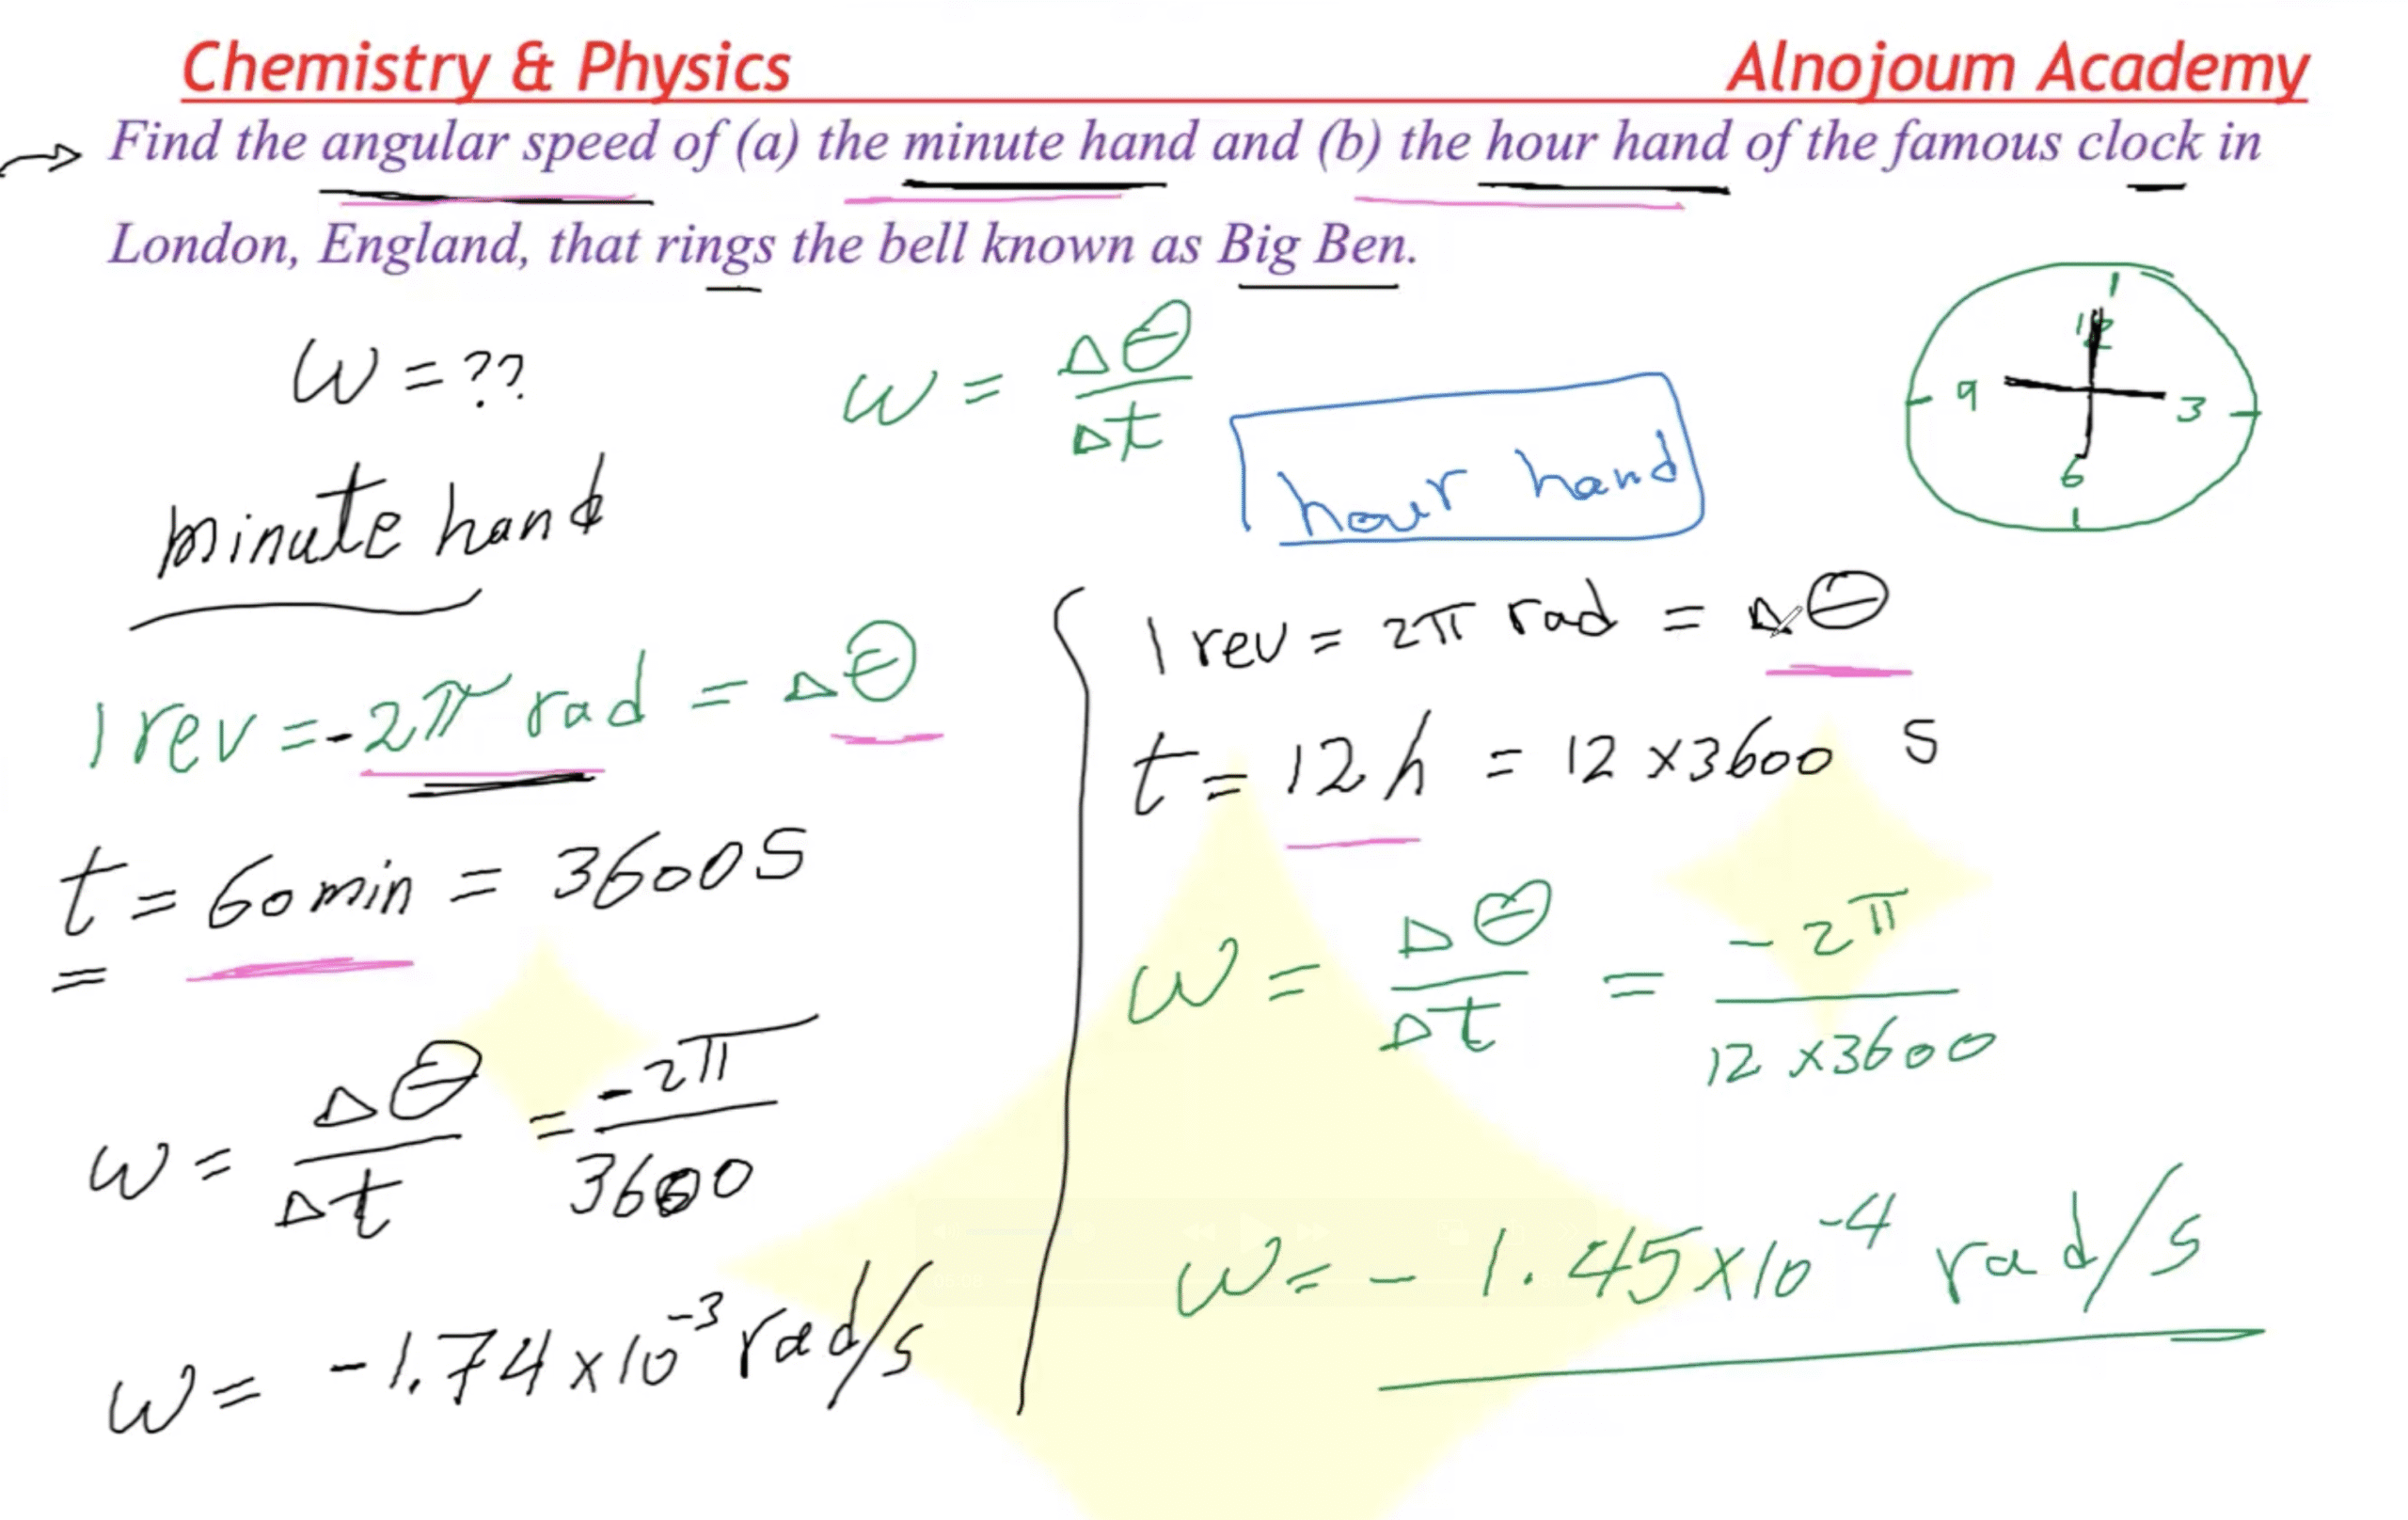 Chemistry & Physics Alnojoum Academy
Find the angular speed of (a) the minute hand and (b) the hour hand of the famous clock in
London, England, that rings the bell known as Big Ben.
ω = ??
ω = Δθ/Δt
12
9
3
6
minute hand
1 rev = -2π rad = Δθ
t = 60 min = 3600 S
=
ω = Δθ/Δt = -2π/3600
ω = -1.74 x 10⁻³ rad/s
hour hand
1 rev = 2π rad = Δθ
t = 12 h = 12 x 3600 S
ω = Δθ/Δt = -2π/12 x 3600
ω = - 1.45 x 10⁻⁴ rad/s